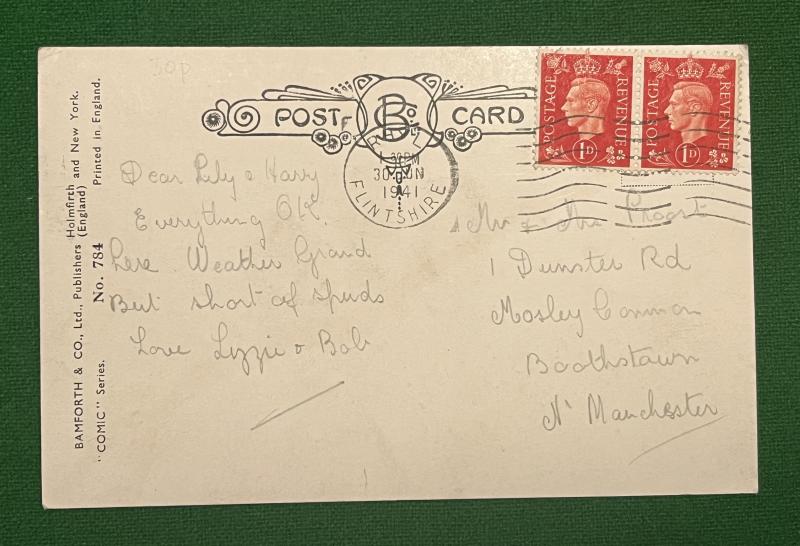 30p
POST CARD
B Co Ltd
POSTAGE REVENUE
1D
POSTAGE REVENUE
1D
RHYL
1.30PM
30 JUN
1941
FLINTSHIRE
BAMFORTH & CO., Ltd., Publishers Holmfirth and New York.
(England)
"COMIC" Series.
No. 784
Printed in England.
Dear Lily & Harry
Everything OK.
here Weather Grand
But short of spuds
Love Lizzie & Bob
Mr & Mrs
1 Dunster Rd
Mosley Common
Boothstown
Nr Manchester